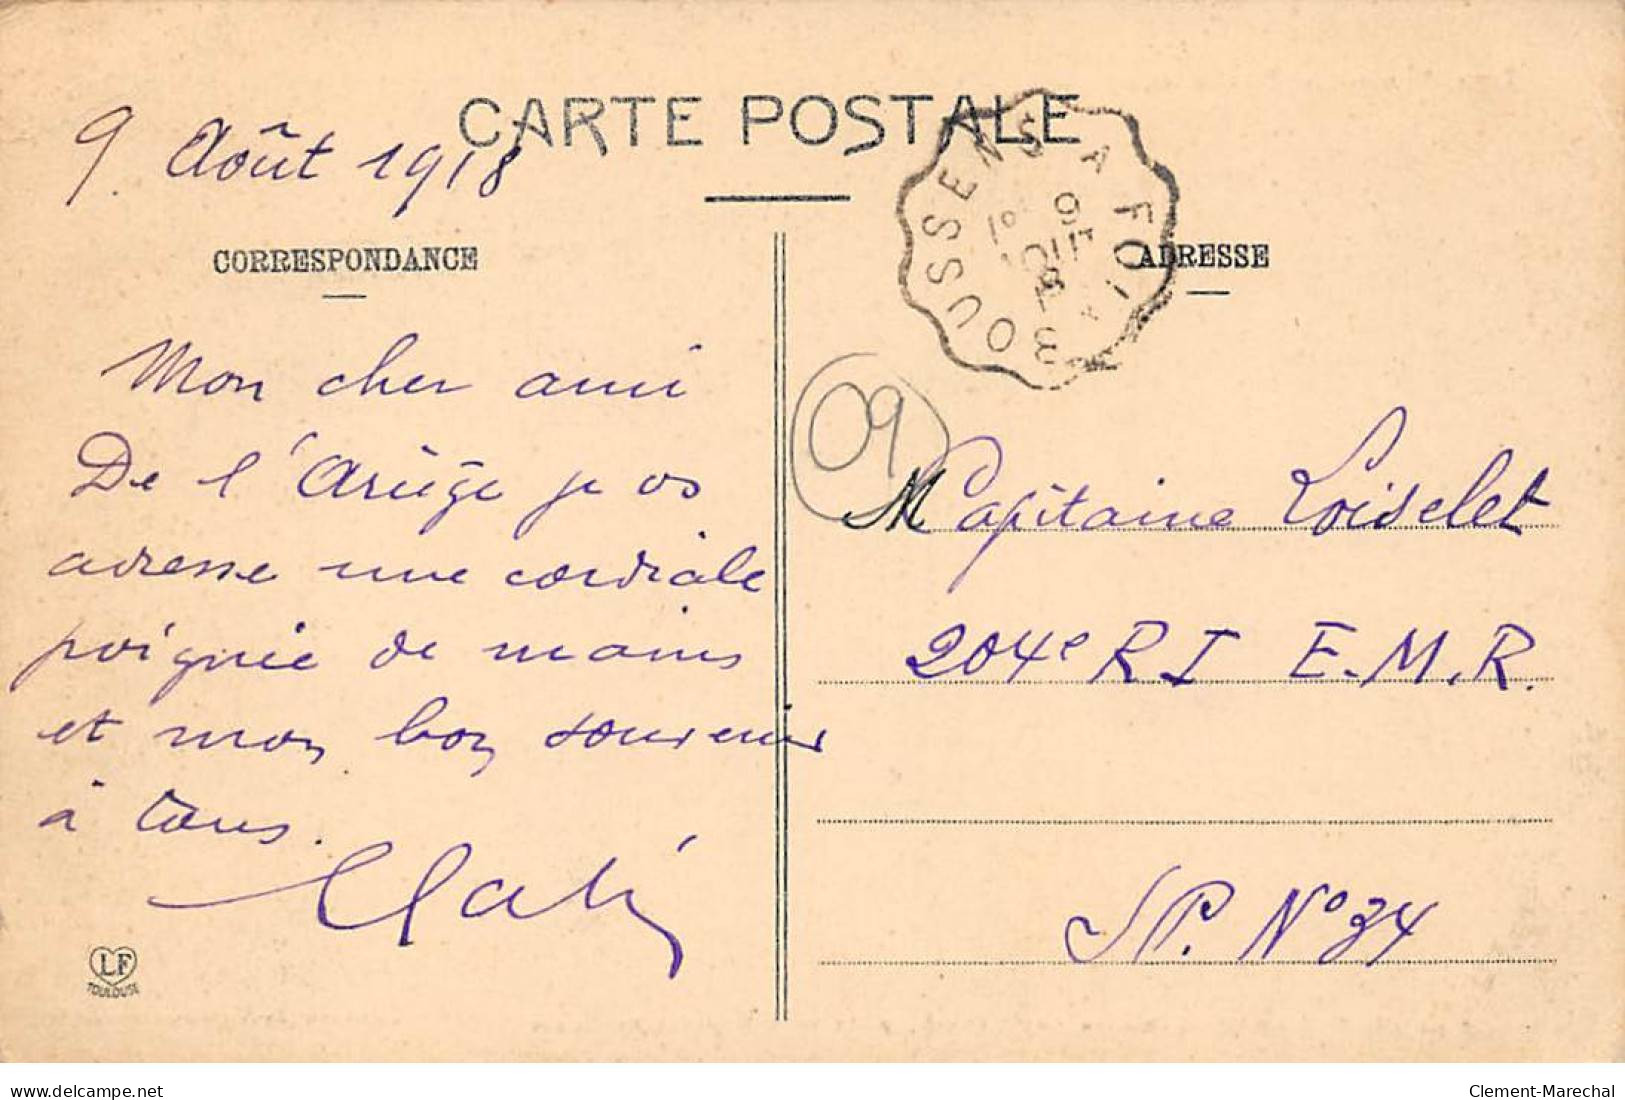 CARTE POSTALE
9 Août 1918
CORRESPONDANCE
Mon cher ami
De l'Ariège je vs
adresse une cordiale
poignée de mains
et mon bon souvenir
à tous.
LF
TOULOUSE
BOUSSENS A FOIX
9
AOUT
18
ADRESSE
09
M Capitaine Loiselet
204e RI E.M.R.
SP. N° 34
www.delcampe.net
Clement-Marechal